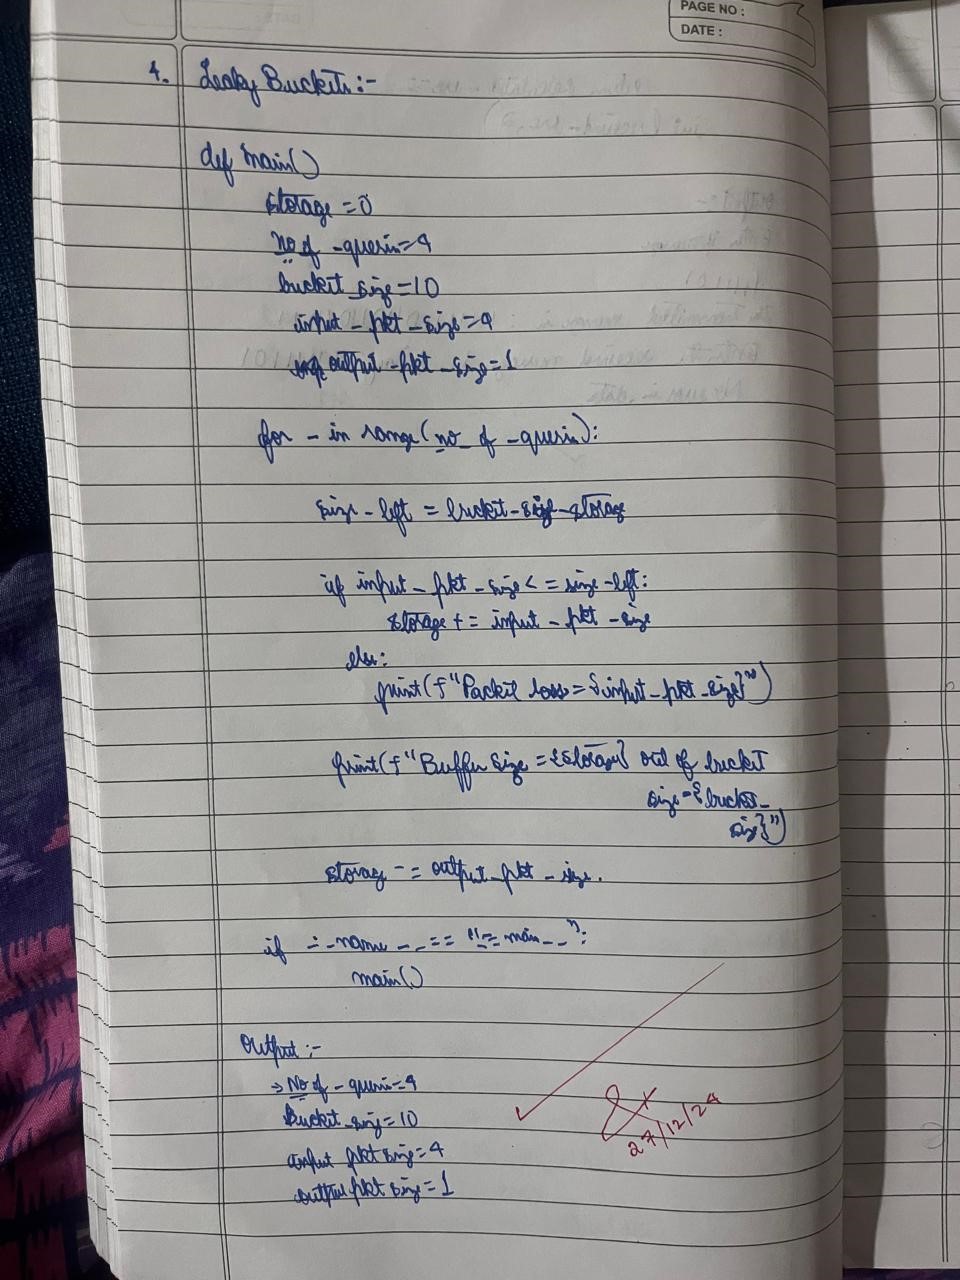 PAGE NO :
DATE :
4. Leaky Bucket :-
def main()
storage = 0
no_of_queries=4
bucket_size=10
input_pkt_size=4
output_pkt_size=1
for _ in range(no_of_queries):
size_left = bucket_size-storage
if input_pkt_size <= size_left:
storage += input_pkt_size
else:
print(f"Packet loss = {input_pkt_size}")
print(f"Buffer size = {storage} out of bucket
size={bucket_
size}")
storage -= output_pkt_size.
if __name__ == "__main__":
main()
Output :-
→ No of - queri=4
Bucket size=10
input pkt size=4
output pkt size=1
27/12/24